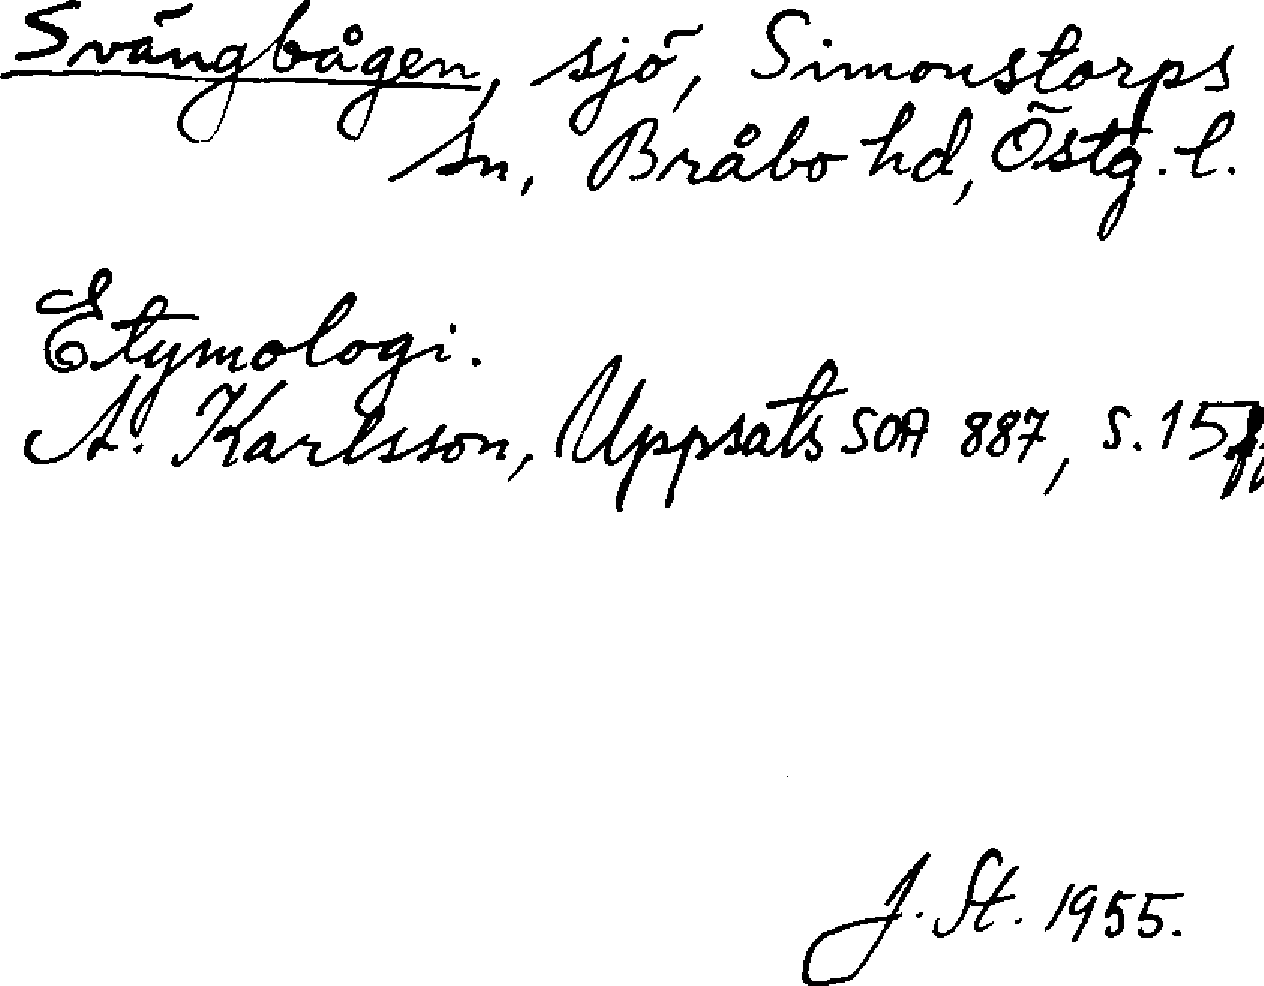 Svängbågen, sjö, Simonstorps
sn, Bråbo hd, Östg. l.
Etymologi.
A. Karlsson, Uppsats SOA 887, s. 15ff
J. St. 1955.